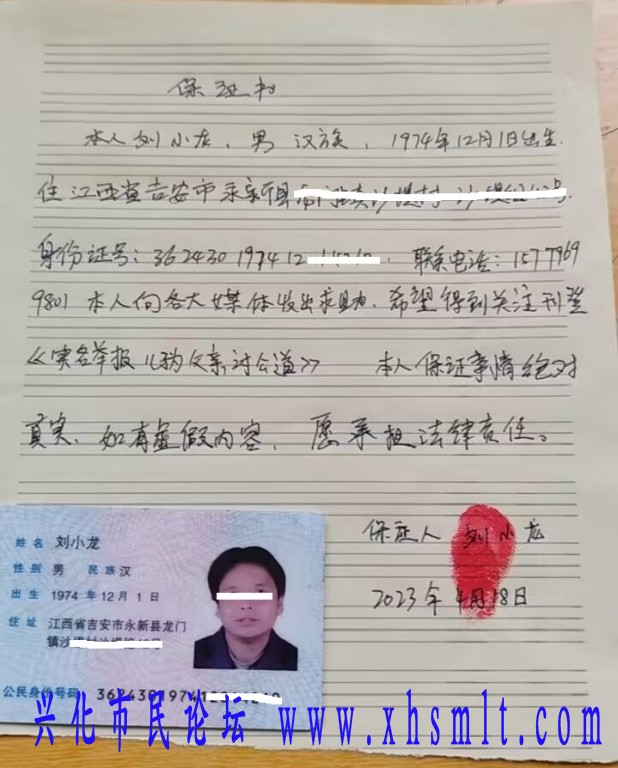 保证书
本人刘小龙、男 汉族，1974年12月1日出生.
住江西省吉安市永新县
身份证号：362430 1974 12 联系电话：1577969
9801 本人向各大媒体发出求助，希望得到关注刊登
《实名举报儿为父亲讨公道》 本人保证事情绝对
真实、如有虚假内容，愿承担法律责任。
保证人 刘小龙
2023年4月18日
姓名 刘小龙
性别 男 民族 汉
出生 1974 年 12 月 1 日
住址 江西省吉安市永新县龙门
镇沙
公民身份号码
兴化市民论坛 www.xhsmlt.com